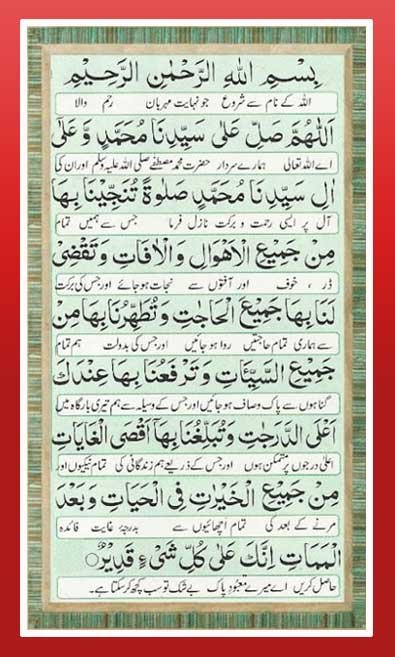 بِسْمِ اللهِ الرَّحْمٰنِ الرَّحِيْمِ
اللہ کے نام سے شروع جو نہایت مہربان رحم والا
اَللّٰهُمَّ صَلِّ عَلٰى سَيِّدِنَا مُحَمَّدٍ وَّعَلٰٓى
اے اللہ تعالیٰ ہمارے سردار حضرت محمد مصطفےٰ صلی اللہ علیہ وسلم اور ان کی
اٰلِ سَيِّدِنَا مُحَمَّدٍ صَلٰوةً تُنَجِّيْنَا بِهَا
آل پر ایسی رحمت و برکت نازل فرما جس سے ہمیں تمام
مِنْ جَمِيْعِ الْاَهْوَالِ وَالْاٰفَاتِ وَتَقْضِىْ
ڈر ، خوف اور آفتوں سے نجات ہو جائے اور جس کی برکت
لَنَا بِهَا جَمِيْعَ الْحَاجٰتِ وَتُطَهِّرُنَا بِهَا مِنْ
سے ہماری تمام حاجتیں روا ہو جائیں اور جس کی بدولت ہم تمام
جَمِيْعِ السَّيِّاٰتِ وَتَرْفَعُنَا بِهَا عِنْدَكَ
گناہوں سے پاک وصاف ہو جائیں اور جس کے وسیلہ سے ہم تیری بارگاہ میں
اَعْلَى الدَّرَجٰتِ وَتُبَلِّغُنَا بِهَآ اَقْصَى الْغَايَاتِ
اعلیٰ درجوں پر متمکن ہوں اور جس کے ذریعے ہم زندگانی کی تمام نیکیوں اور
مِنْ جَمِيْعِ الْخَيْرٰتِ فِى الْحَيَاتِ وَبَعْدَ
مرنے کے بعد کی تمام اچھائیوں سے بدرجۂ غایت فائدہ
الْمَمَاتِ اِنَّكَ عَلٰى كُلِّ شَىْءٍ قَدِيْرٌ
حاصل کریں اے میرے معبودِ پاک بے شک تو سب کچھ کر سکتا ہے۔